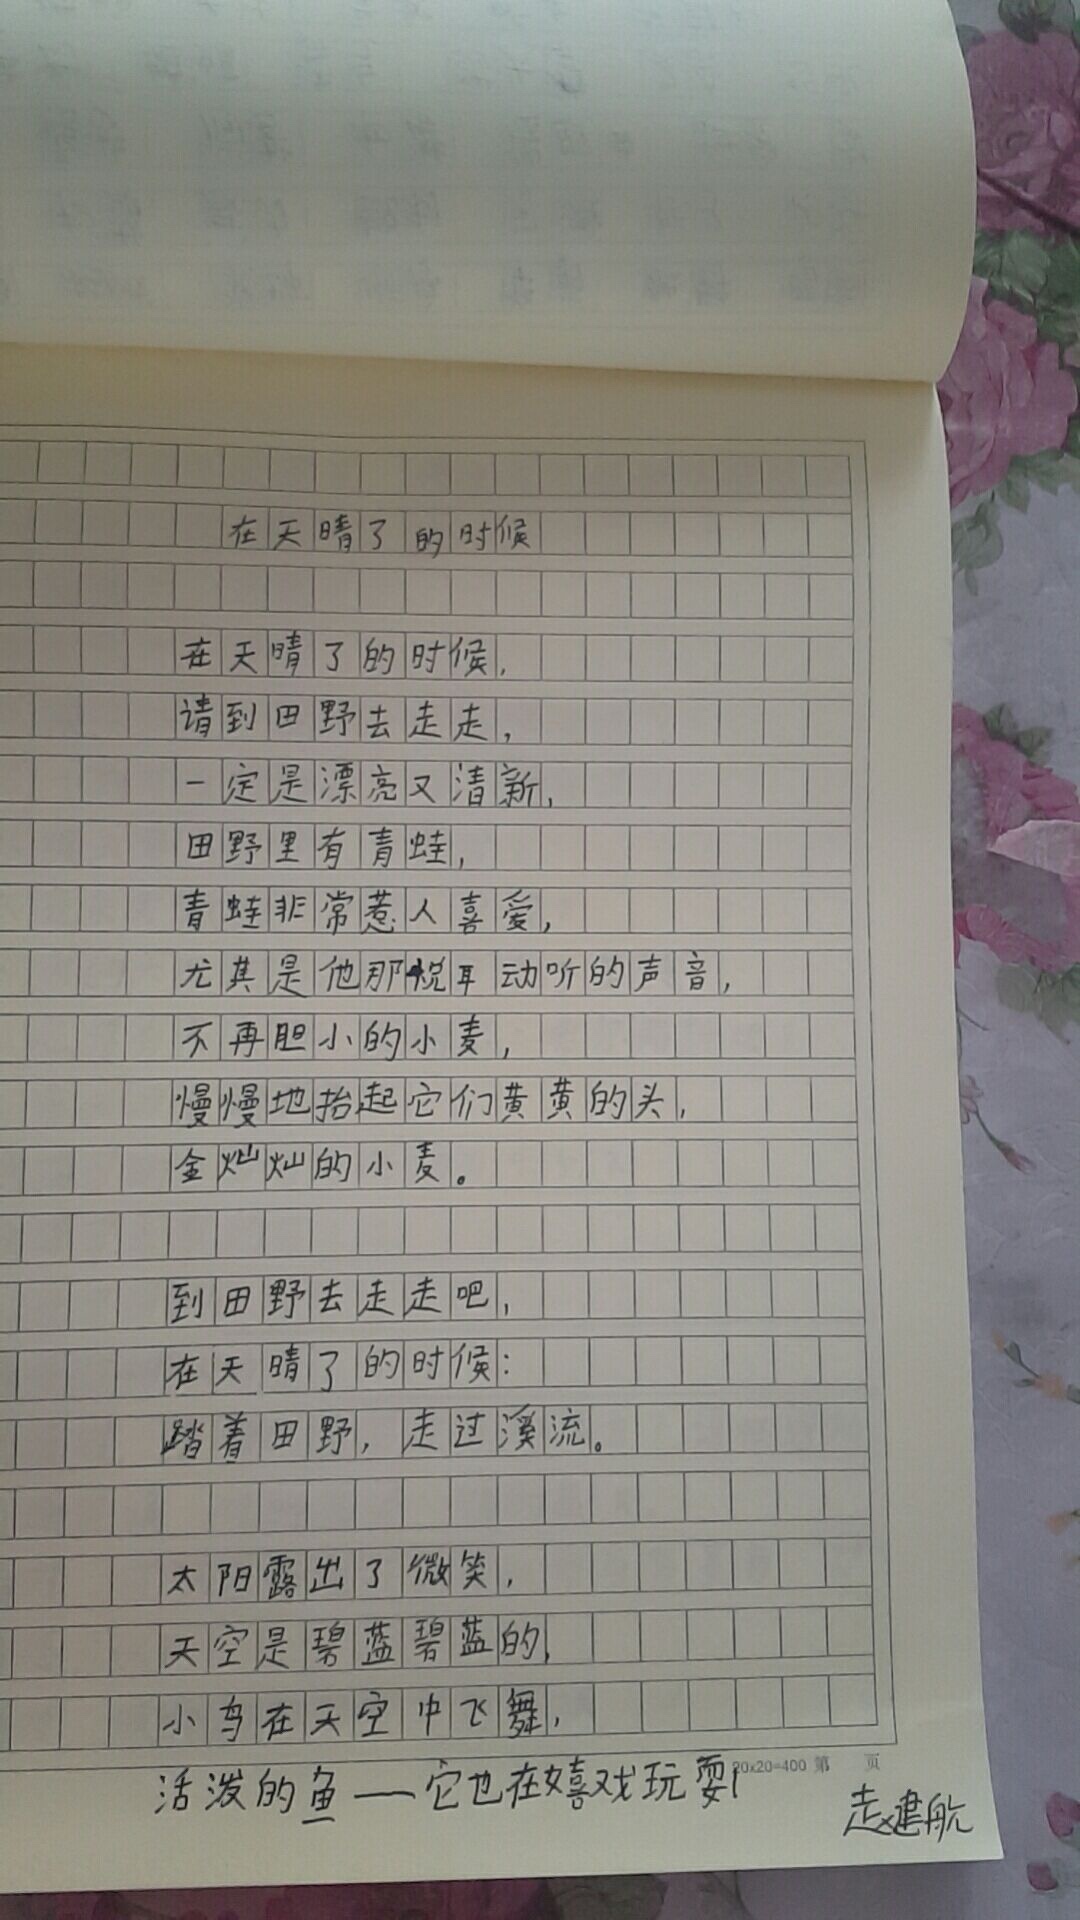 在天晴了的时候
在天晴了的时候，
请到田野去走走，
一定是漂亮又清新，
田野里有青蛙，
青蛙非常惹人喜爱，
尤其是他那悦耳动听的声音，
不再胆小的小麦，
慢慢地抬起它们黄黄的头，
金灿灿的小麦。
到田野去走走吧，
在天晴了的时候：
踏着田野，走过溪流。
太阳露出了微笑，
天空是碧蓝碧蓝的，
小鸟在天空中飞舞，
20x20=400 第 页
活泼的鱼——它也在嬉戏玩耍！
建航